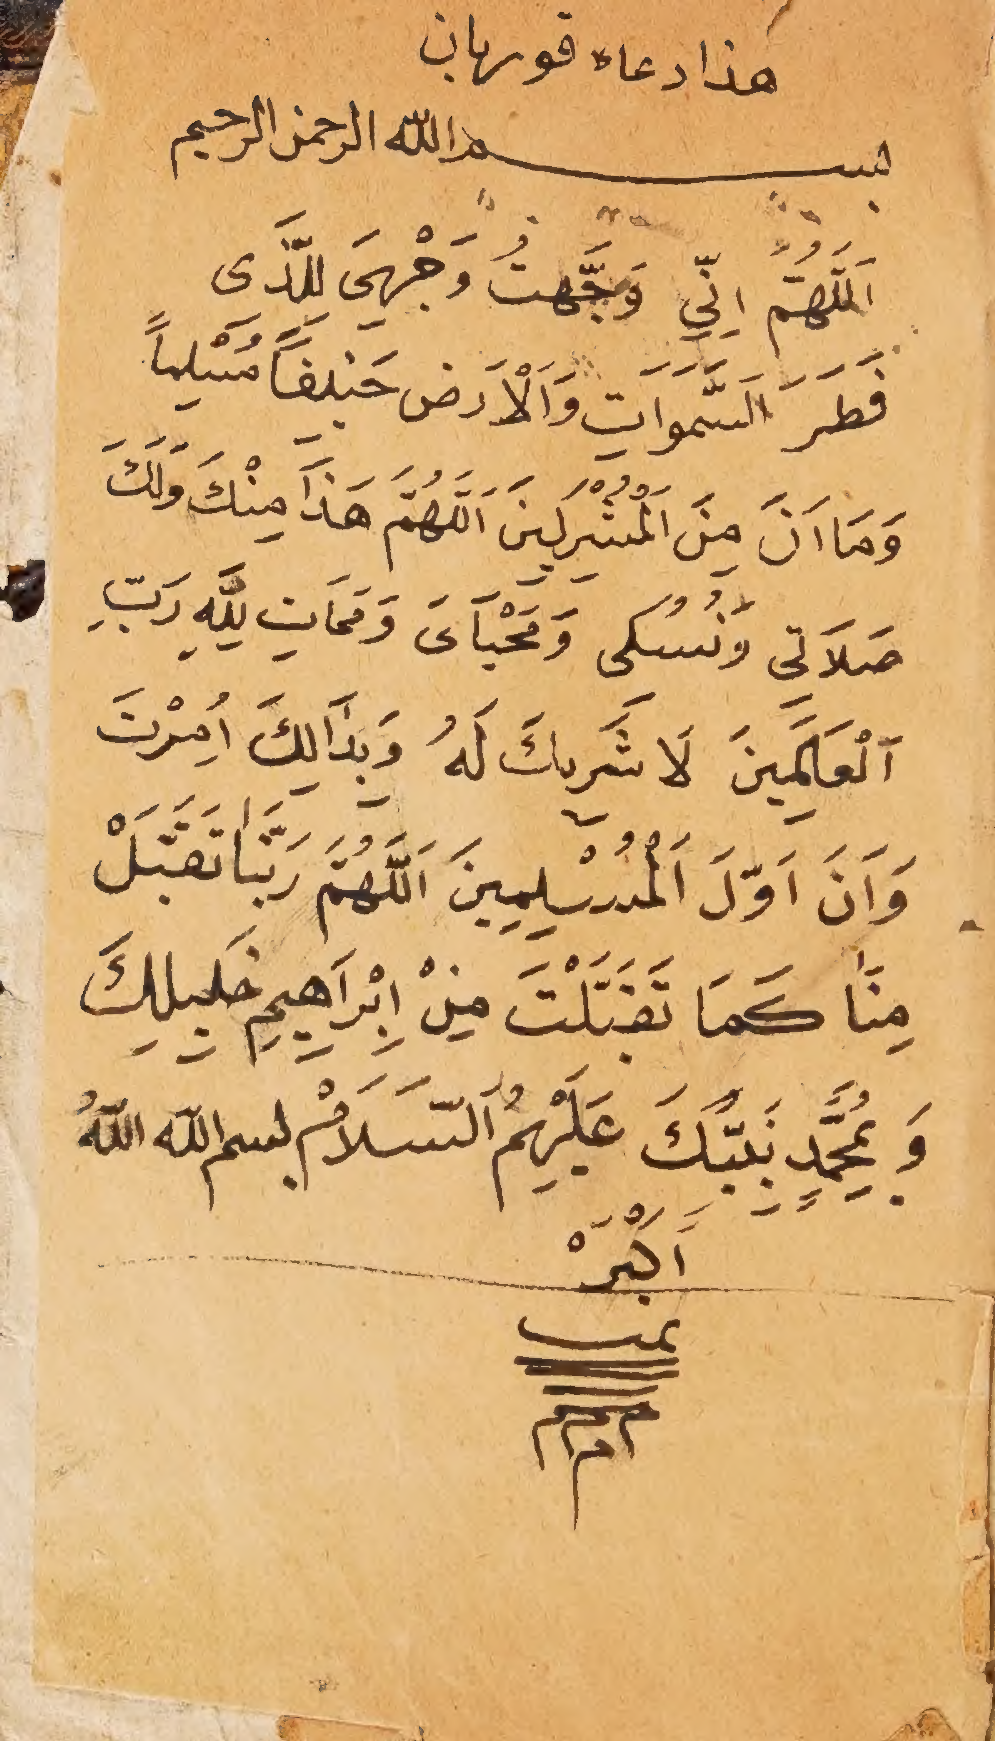 هذا دعاء قوربان
بسم الله الرحمن الرحيم
اَللَّهُمَّ اِنِّي وَجَّهتُ وَجْهِيَ لِلَّذَى
فَطَرَ اَلسَّمَوَاتِ وَاَلْاَرَض حَنِيفَاً مُسْلِماً
وَمَا اَنَ مِنَ اَلْمُشْرِكِينَ اَللَّهُمَّ هَذَا مِنْكَ وَلَكَ
صَلَاَتِي وَنُسُكى وَمَحْيَاَىَ وَمَمَاتِ لِلَّهِ رَبِّ
اَلْعَالَمِينَ لَا شَرِيكَ لَهُ وَبِذَالِكَ اُمِرْتَ
وَاَنَ اَوَّلَ اَلْمُسْلِمِينَ اَللَّهُمَّ رَبَّنَا تَقَبَّلْ
مِنَّا كَمَا تَقَبَلْتَ مِنْ اِبْرَاهِيمِ خَلِيلِكَ
وَبِمُحَمَّدٍ نَبِيِّكَ عَلَيْهِمُ اَلسَّلَامْ بسم الله اللهُ
اَكْبَرْ
تمت